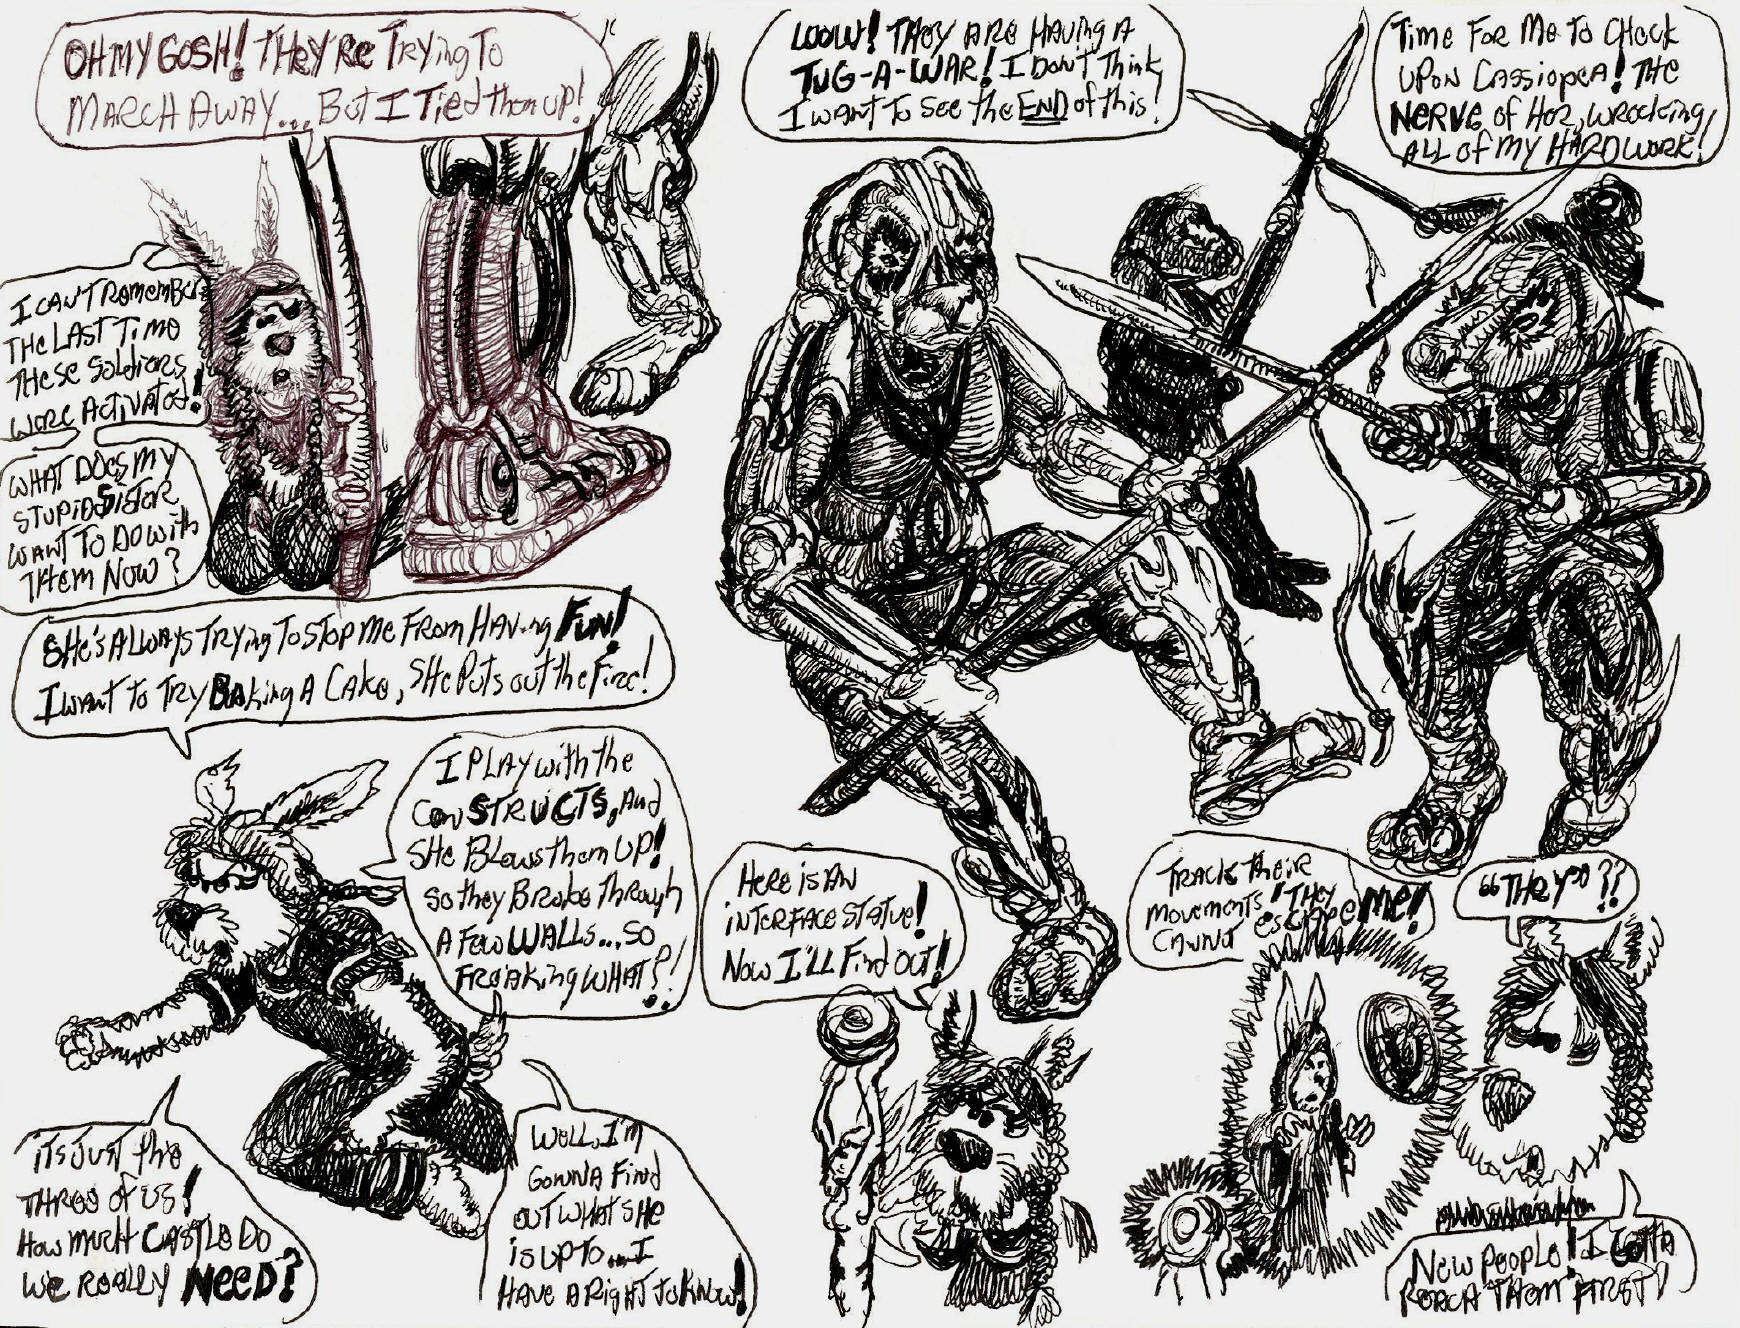 OH MY GOSH! THEY'RE TRYING TO
MARCH AWAY... BUT I TIED THEM UP!
I CAN'T REMEMBER
THE LAST TIME
THESE SOLDIERS
WERE ACTIVATED!
WHAT DOES MY
STUPID SISTER
WANT TO DO WITH
THEM NOW?
SHE'S ALWAYS TRYING TO STOP ME FROM HAVING FUN!
I WANT TO TRY BAKING A CAKE, SHE PUTS OUT THE FIRE!
I PLAY WITH THE
CONSTRUCTS, AND
SHE BLOWS THEM UP!
SO THEY BROKE THROUGH
A FEW WALLS... SO
FREAKING WHAT?!
ITS JUST THE
THREE OF US!
HOW MUCH CASTLE DO
WE REALLY NEED?
WELL, I'M
GONNA FIND
OUT WHAT SHE
IS UP TO... I
HAVE A RIGHT TO KNOW!
WOOW! THEY ARE HAVING A
TUG-A-WAR! I DON'T THINK
I WANT TO SEE THE END OF THIS!
TIME FOR ME TO CHECK
UPON CASSIOPEA! THE
NERVE OF HER, WRECKING
ALL OF MY HARD WORK!
HERE IS AN
INTERFACE STATUE!
NOW I'LL FIND OUT!
TRACK THEIR
MOVEMENTS! THEY
CANNOT ESCAPE ME!
"THEY"??
NEW PEOPLE! I GOTTA
REACH THEM FIRST!